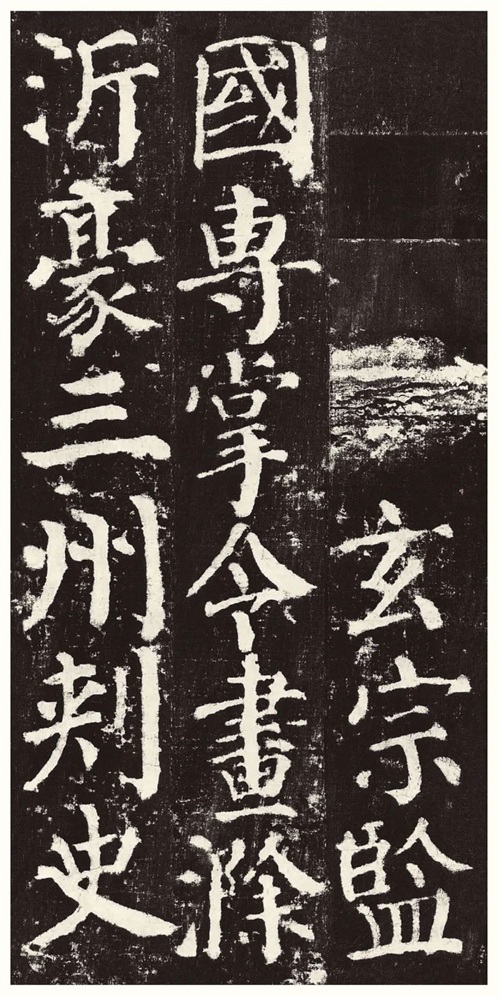 玄宗監
國專掌令畫滁
沂豪三州刾史